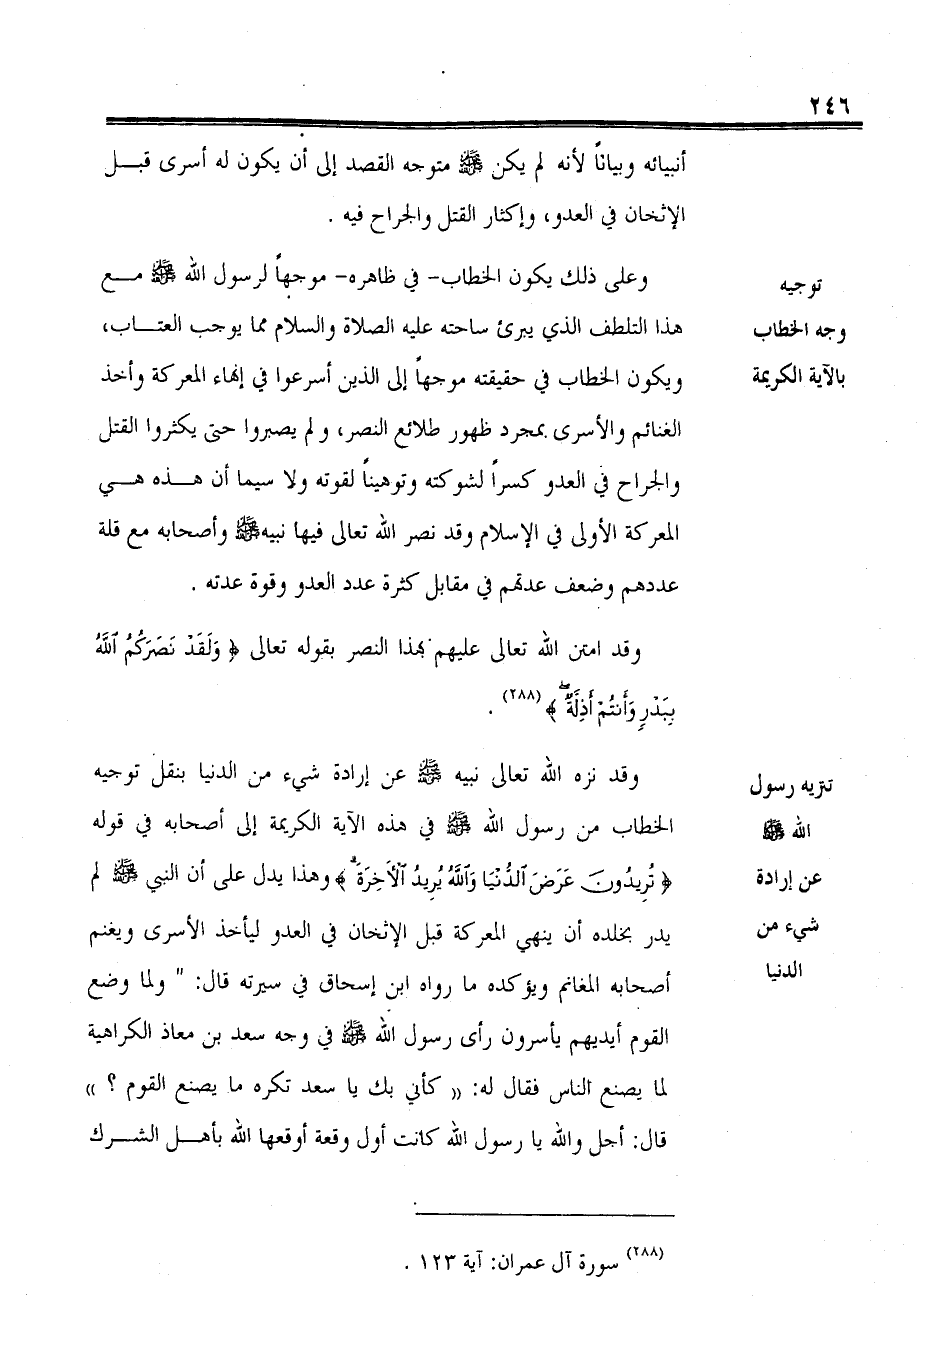 ٢٤٦
أنبيائه وبياناً لأنه لم يكن ﷺ متوجه القصد إلى أن يكون له أسرى قبــل
الإثخان في العدو، وإكثار القتل والجراح فيه .
توجيه
وجه الخطاب
بالآية الكريمة
وعلى ذلك يكون الخطاب- في ظاهره- موجهاً لرسول الله ﷺ مــع
هذا التلطف الذي يبرئ ساحته عليه الصلاة والسلام مما يوجب العتــاب،
ويكون الخطاب في حقيقته موجهاً إلى الذين أسرعوا في إنهاء المعركة وأخذ
الغنائم والأسرى بمجرد ظهور طلائع النصر، ولم يصبروا حتى يكثروا القتل
والجراح في العدو كسراً لشوكته وتوهيناً لقوته ولا سيما أن هــذه هــي
المعركة الأولى في الإسلام وقد نصر الله تعالى فيها نبيهﷺ وأصحابه مع قلة
عددهم وضعف عدتهم في مقابل كثرة عدد العدو وقوة عدته .
وقد امتن الله تعالى عليهم بهذا النصر بقوله تعالى ﴿ وَلَقَدْ نَصَرَكُمُ ٱللَّهُ
بِبَدْرٍ وَأَنتُمْ أَذِلَّةٌ ۖ ﴾ (٢٨٨) .
تنزيه رسول
الله ﷺ
عن إرادة
شيء من
الدنيا
وقد نزه الله تعالى نبيه ﷺ عن إرادة شيء من الدنيا بنقل توجيه
الخطاب من رسول الله ﷺ في هذه الآية الكريمة إلى أصحابه في قوله
﴿ تُرِيدُونَ عَرَضَ ٱلدُّنْيَا وَٱللَّهُ يُرِيدُ ٱلْآخِرَةَ ۗ ﴾ وهذا يدل على أن النبي ﷺ لم
يدر بخلده أن ينهي المعركة قبل الإثخان في العدو ليأخذ الأسرى ويغنم
أصحابه المغانم ويؤكده ما رواه ابن إسحاق في سيرته قال: " ولما وضع
القوم أيديهم يأسرون رأى رسول الله ﷺ في وجه سعد بن معاذ الكراهية
لما يصنع الناس فقال له: (( كأني بك يا سعد تكره ما يصنع القوم ؟ ))
قال: أجل والله يا رسول الله كانت أول وقعة أوقعها الله بأهــل الشــرك
(٢٨٨) سورة آل عمران: آية ١٢٣ .